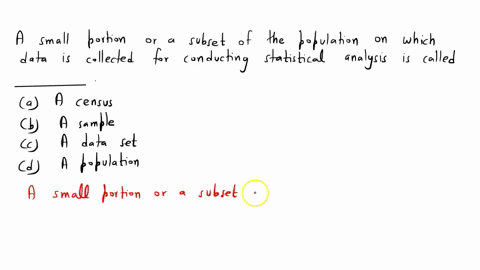 A small portion or a subset of the population on which
data is collected for conducting statistical analysis is called
__________ .
(a) A census
(b) A sample
(c) A data set
(d) A population
A small portion or a subset